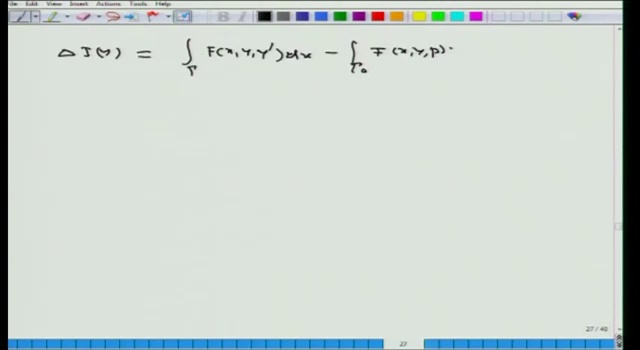 File Edit View Insert Actions Tools Help
Δ J(Y) = ∫_Γ F(x, Y, Y') dx − ∫_Γ₀ F(x, Y, p)
27 / 40
27